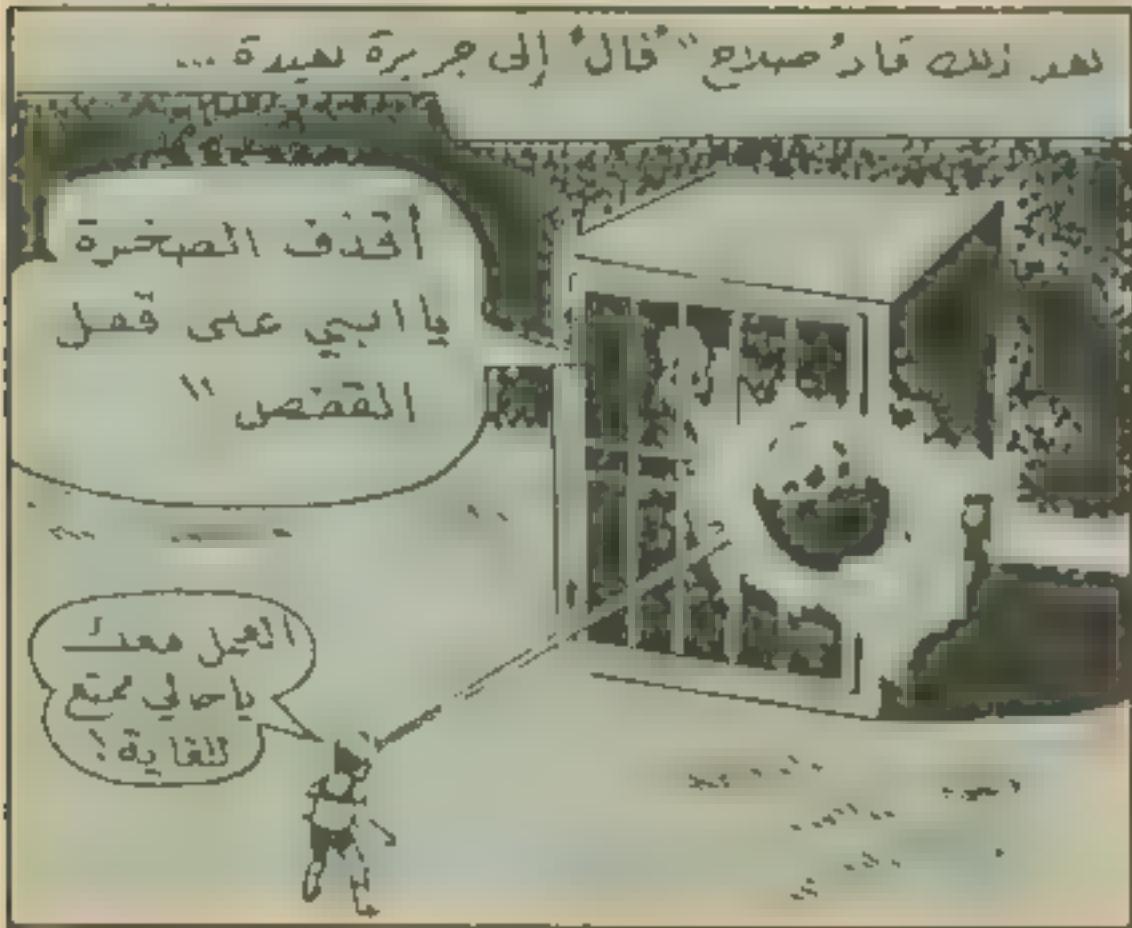 بعد ذلك قاد صلاح "فال" إلى جزيرة بعيدة ...
أقذف الصخرة
يا ابني على قفل
القفص "
العمل معك
يا خالي ممتع
للغاية !